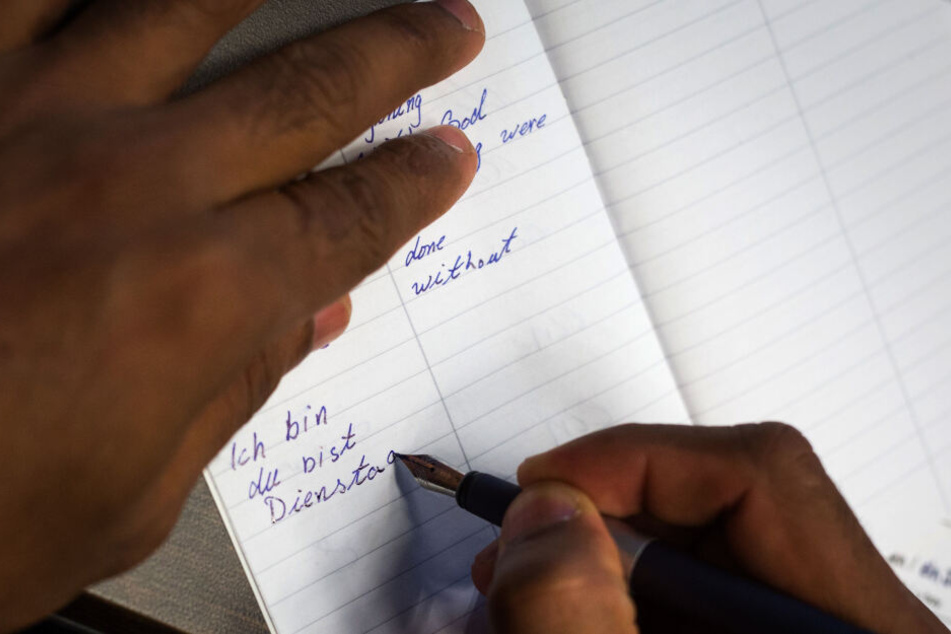 God
were
done
without
Ich bin
du bist
Diensta